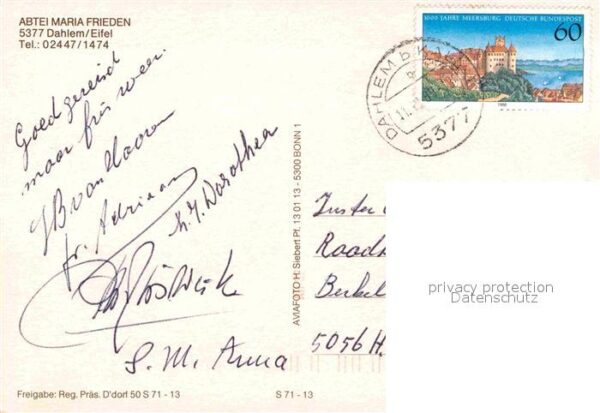 ABTEI MARIA FRIEDEN
5377 Dahlem/Eifel
Tel.: 02447/1474
1000 JAHRE MEERSBURG DEUTSCHE BUNDESPOST
60
1988
DAHLEM
5377
Goed gereisd
maar fris weer.
fr. Adriaan
Zr. M. Dorothea
S. M. Anna
AVIAFOTO H. Siebert Pf. 13 01 13 - 5300 BONN 1
Zuster
Berkel
5056 H
privacy protection
Datenschutz
Freigabe: Reg. Präs. D'dorf 50 S 71 - 13
S 71 - 13